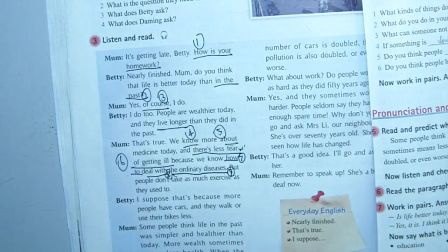 2 What is the question they need
3 What does Betty ask?
4 What does Daming ask?
3 Listen and read.
Mum: It's getting late, Betty. How is your
homework?
Betty: Nearly finished. Mum, do you think
that life is better today than in the
past?
Mum: Yes, of course, I do.
Betty: I do too. People are wealthier today,
and they live longer than they did in
the past.
Mum: That's true. We know more about
medicine today, and there's less fear
of getting ill because we know how
to deal with the ordinary diseases. But
people don't take as much exercise as
they used to.
Betty: I suppose that's because more
people have cars, and they walk or
use their bikes less.
Mum: Some people think life in the past
was simpler and healthier than
today. More wealth sometimes
number of cars is doubled, t
pollution is also doubled, or ev
worse.
Betty: What about work? Do people wo
as hard as they did fifty years ag
Mum: Yes, and they sometimes wor
harder. People seldom say they ha
enough spare time! Why don't y
go and ask Mrs Li, our neighbou
She's over seventy years old. She
seen how life has changed.
Betty: That's a good idea. I'll go and as
her.
Mum: Remember to speak up! She's a b
deaf now.
Everyday English
• Nearly finished.
• That's true.
• I suppose...
1 What kinds of things do
2 What do you do in your
3 What can someone not
4 If something is
5 Do you think people
6 Do you think people
Now work in pairs. A
Pronunciation and
5 Read and predict wh
Some people think
sometimes means less
doubled, or even wors
Now listen and chec
6 Read the paragraph
7 Work in pairs. Answ
– Is life better today
– Yes, it is. I think it
Now say what
• education